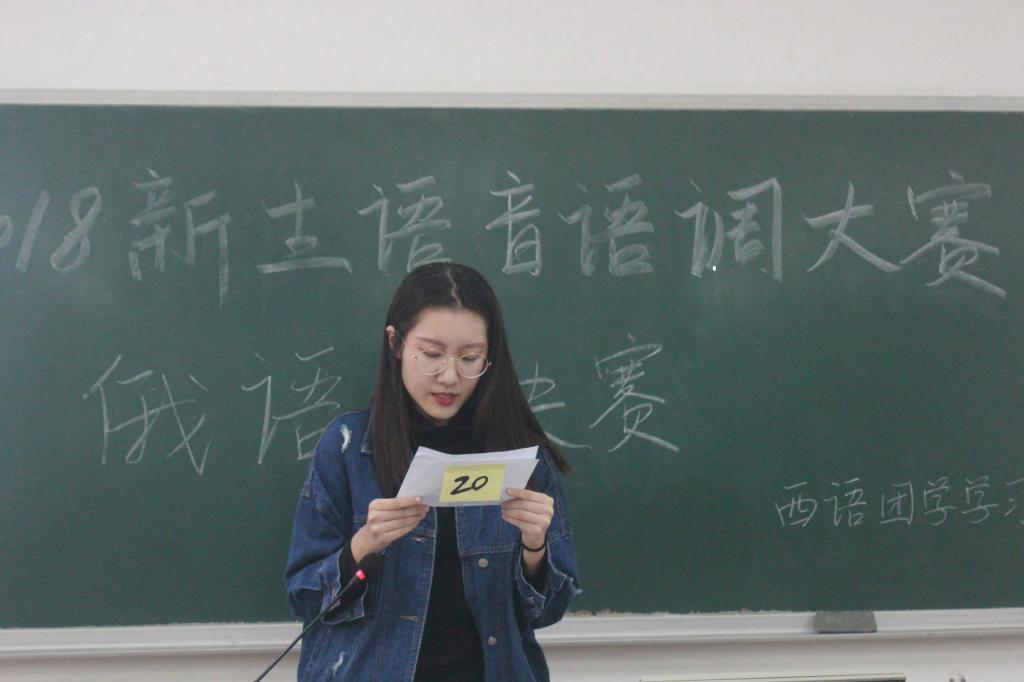 018新生语音语调大赛
俄语决赛
20
西语团学学习